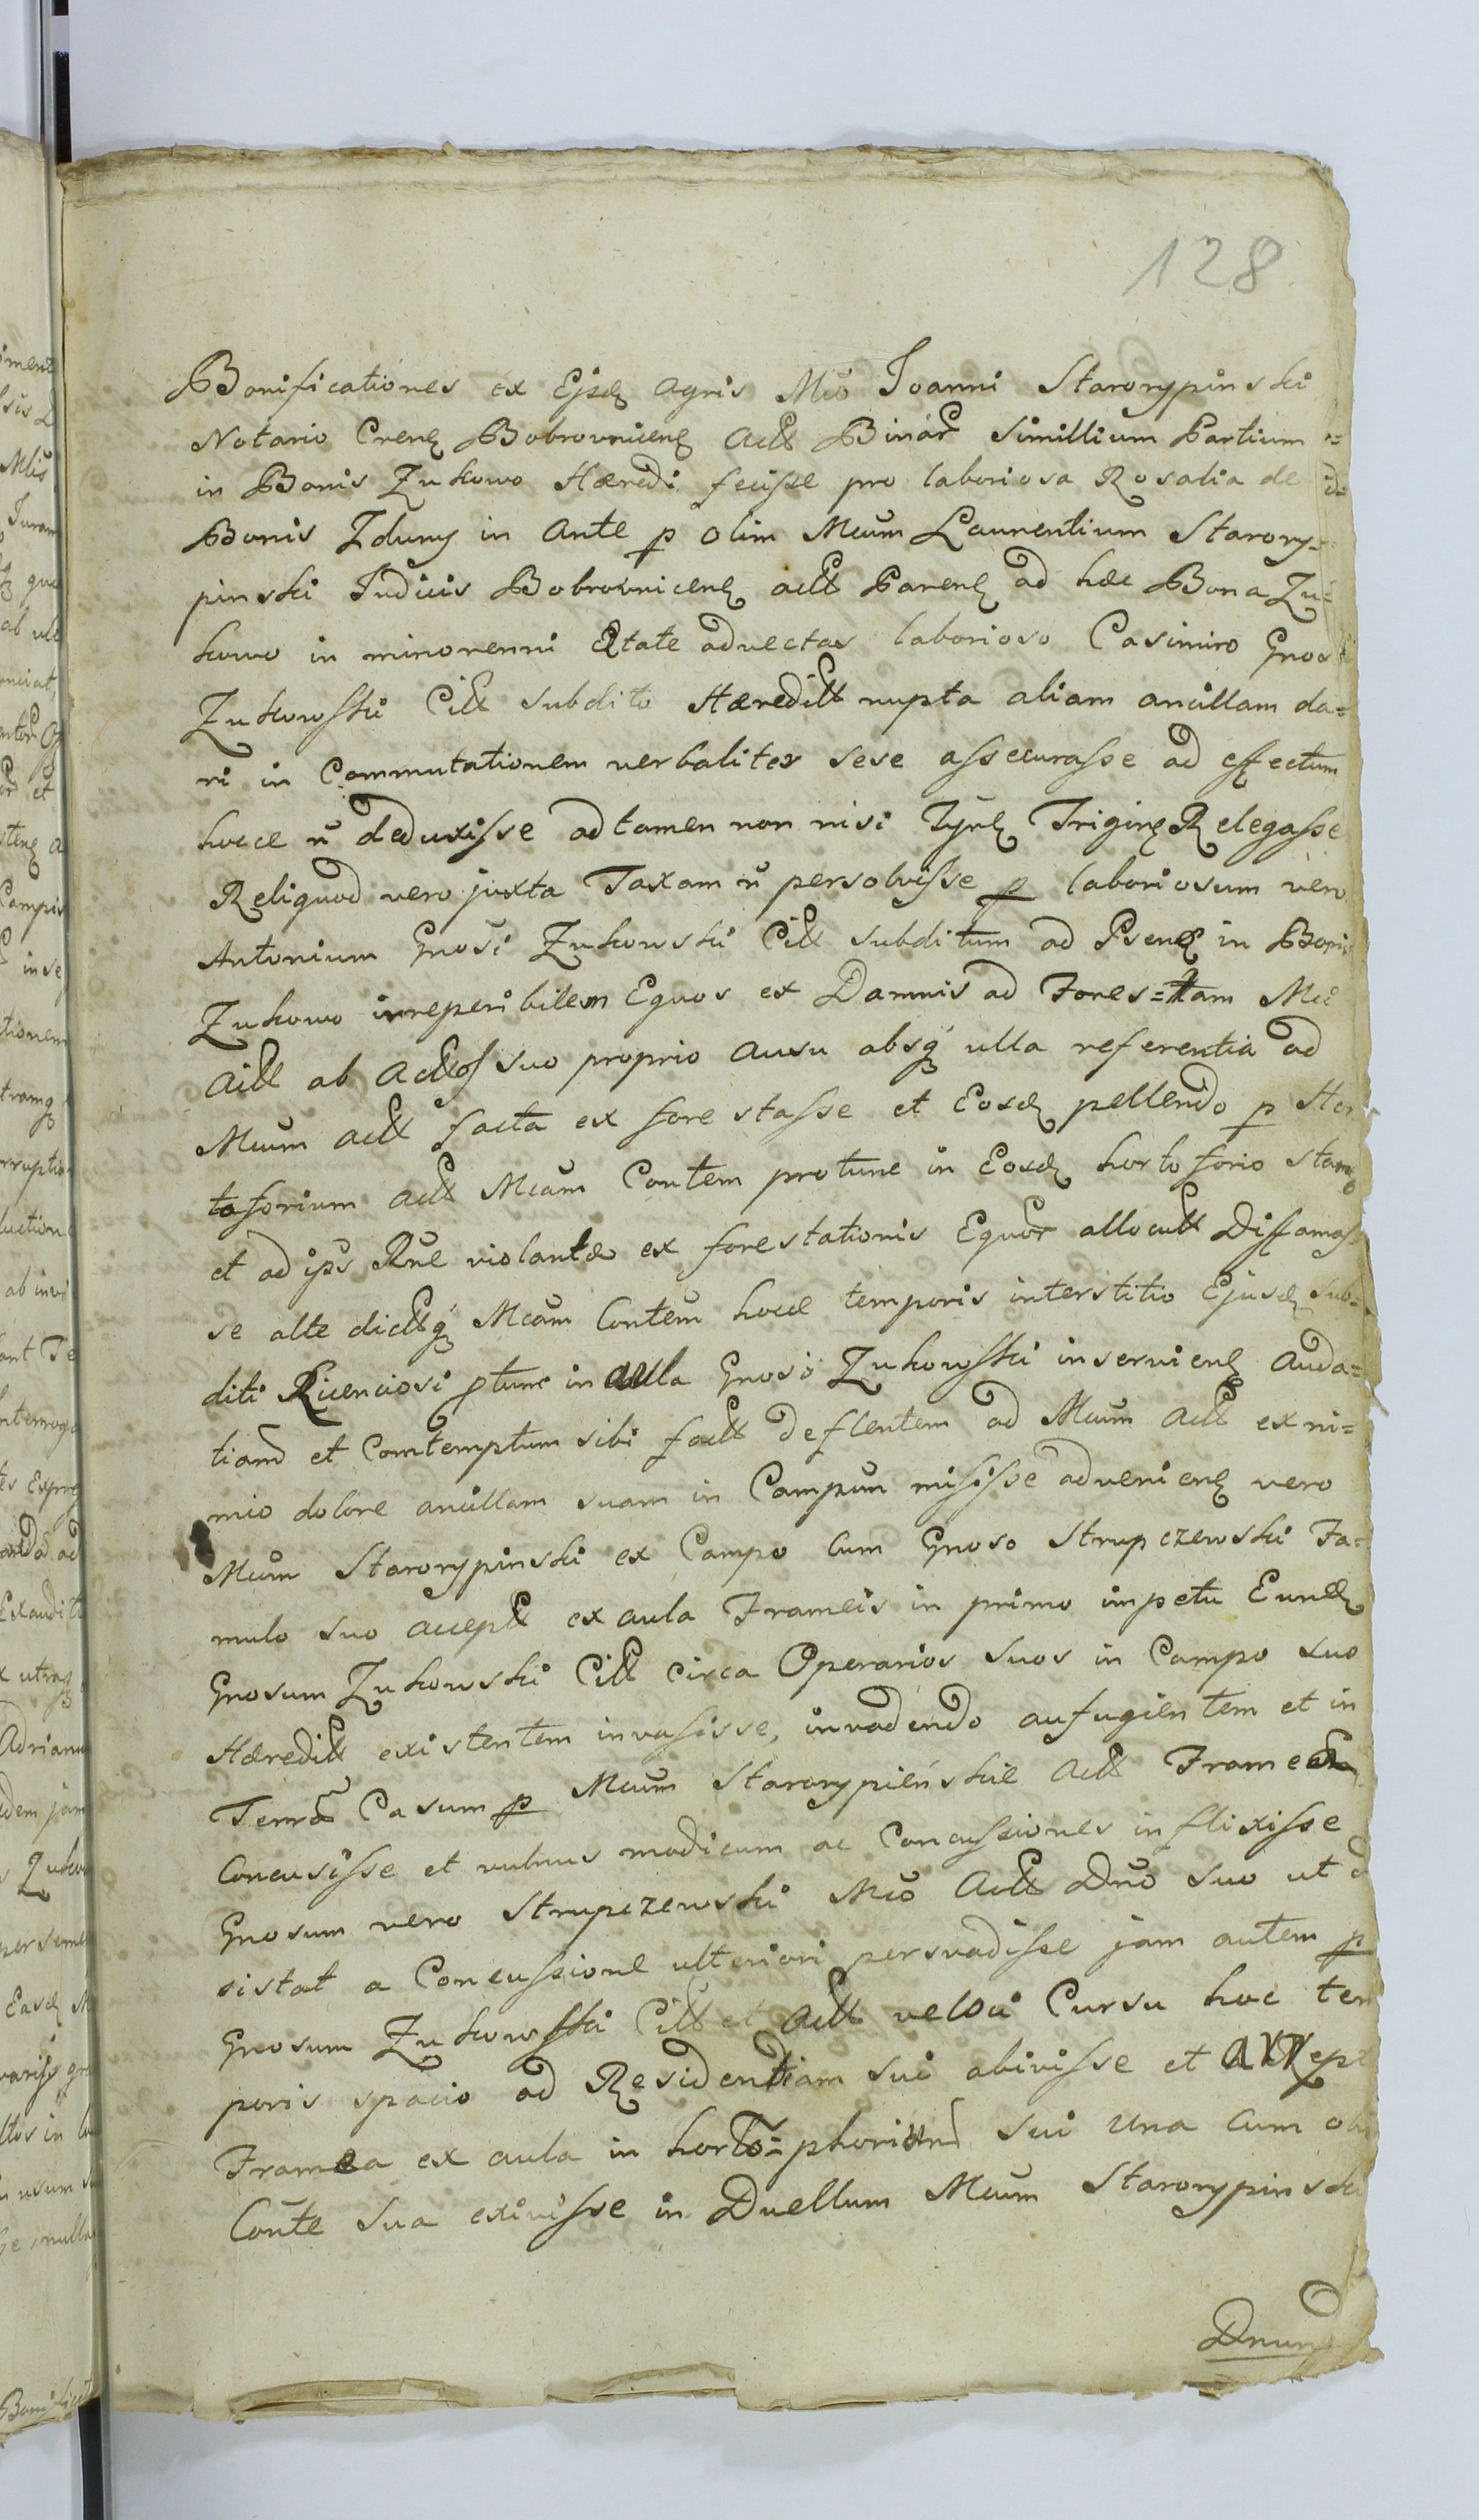 128
Bonificationes ex Ejsd agris Mco Joanni Starorypinski
Notario Crenȝ Bobrovnicenȝ Actt Binar simillium Partium
in Bonis Zukowo Hæredi fecisse pro laboriosa Rosalia de
Bonis Zduny in ante p olim Mcum Laurentium Starory=
pinski Judicis Bobrovnicenȝ actt Parenȝ ad hæc Bona Zu=
kowo in minorenni Ætate advectas laborioso Casimiro Gnosi
Zukowski Citt subdito Hæreditt nupta aliam ancillam da=
ri in Commutationem verbaliter sese assecurasse ad effectum
hocce n deduxisse ad tamen non nisi Tynȝ Triginȝ Relegasse
Reliquod vero juxta Taxam n persolvisse p laboriosum vero
Antonium Gnosi Zukowski Citt subditum ad Psenȝ in Bonis
Zukowo irreperibilem Equos ex Damnis ad Fores=tam Mci
Actt ab suo proprio ausu absq ulla referentia ad
Mcum actt facta ex forestasse et Eosd pellendo p Hor
toforium actt Mcam Contem protunc in Eosd hortoforio stanȝ
et ad ips Rne violantæ ex forestationis Equor allocutt Diffamas
se alte dicttq Mcam Contem hocce temporis interstitio Ejusd sub=
diti Licenciosi ptunc in aula Gnosi Zukowski inservienȝ auda=
tiam et Comtemptum sibi factt deflentem ad Mcum actt ex ni=
mio dolore ancillam suam in Campum misisse advenienȝ vero
Mcum Starorypinski ex Campo cum Gnoso Strupczewski Fa=
mulo suo accept ex aula Frameis in primo impetu Eund
Gnosum Zukowski Citt circa Operarios suos in Campo suo
Hæreditt existentem invasisse, invadendo aufugientem et in
Terrã Casum p Mcum Starorypieńskie actt Framea
Concusisse et vulnus modicum ac Concussiones inflixisse
Gnosum vero Strupczewski Mco Actt Dno suo ut d
sistat a Concussione ulteriori persvadisse jam autem p
Gnosum Zukowski Citt et actt veloci Cursu hoc tem
poris spacio ad Residentiam sui abivisse et
Framea ex aula in horto=phorium sui una cum
Conte sua exivisse in Duellum Mcum Starorypinski
Dnum